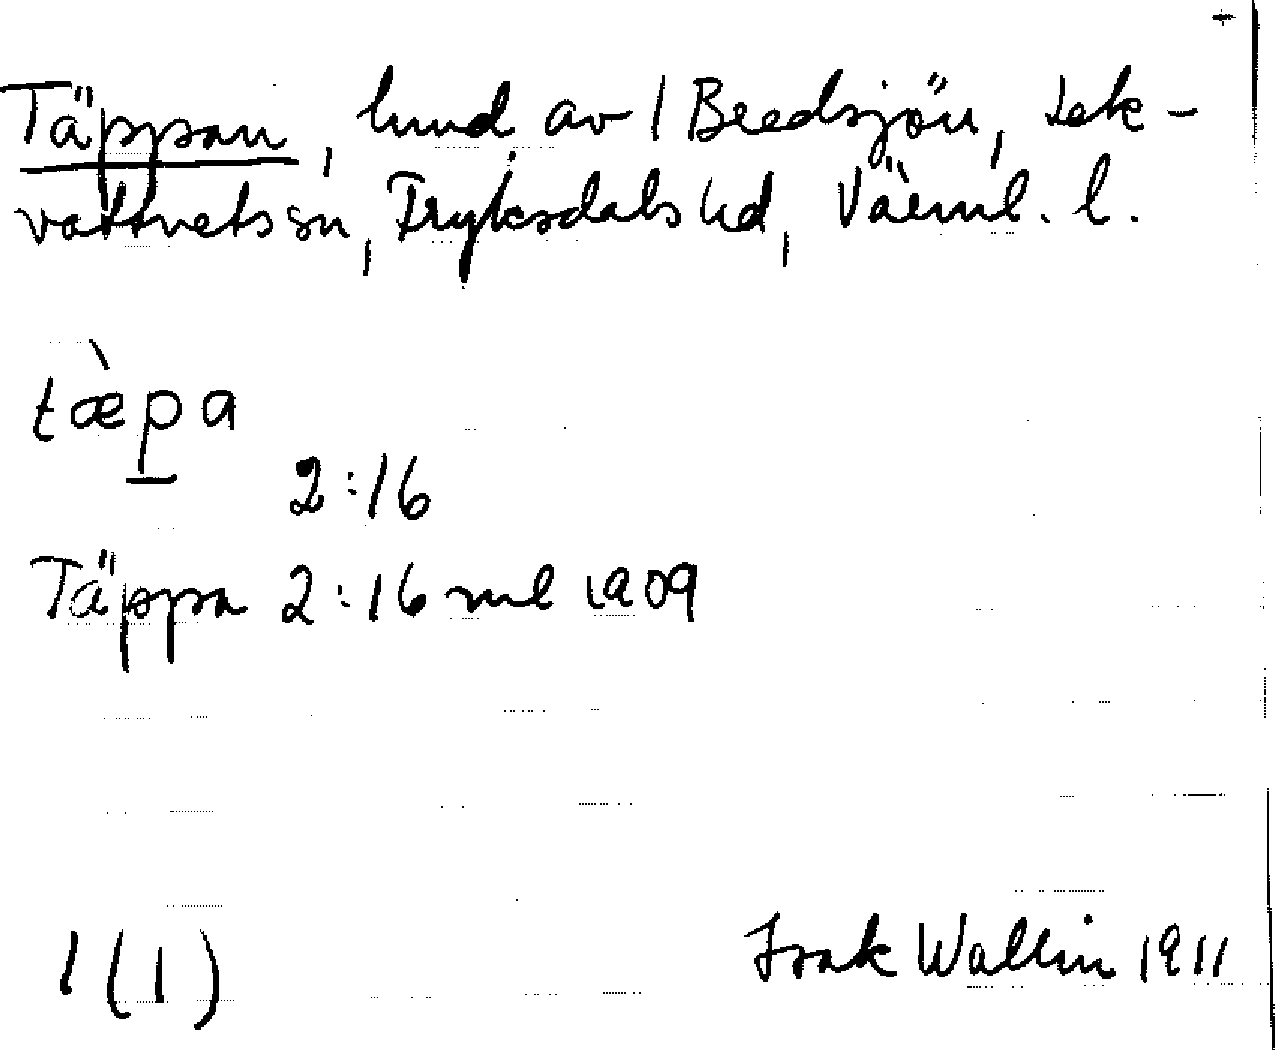 Täppan, hmd av 1 Bredsjön, Lek-
vattnets sn, Fryksdals hd, Värml. l.
tæ̀pa
2:16
Täppa 2:16 ml 1909
1(1)
Isak Wallin 1911